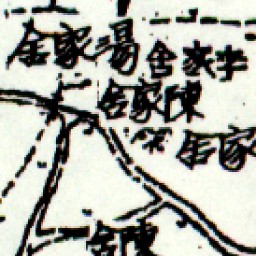 李家舍
湯家舍
陳家舍
家舍
陳舍